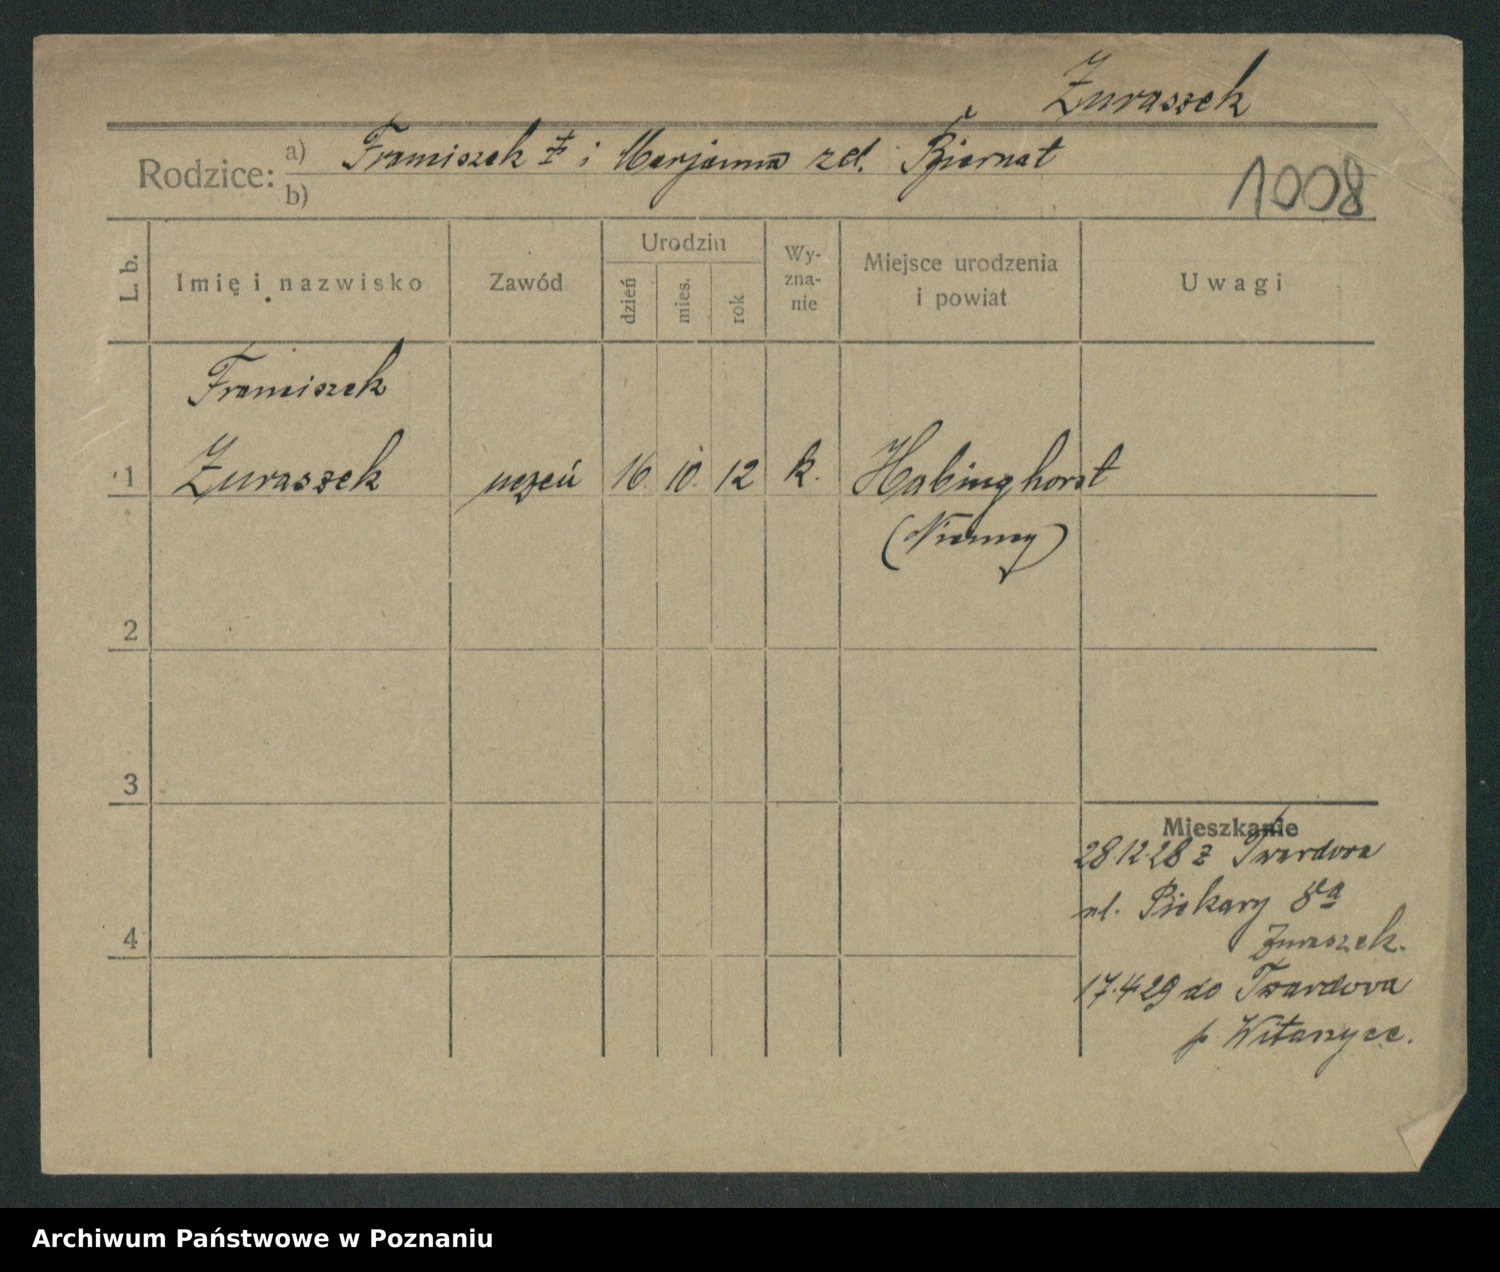 Żuraszek
Rodzice: a) Franciszek Ż i Marjanna zd. Biernat
b)
1008
L. b.
Imię i nazwisko
Zawód
Urodzin
dzień
mies.
rok
Wy-
zna-
nie
Miejsce urodzenia
i powiat
Uwagi
Franciszek
1 Żuraszek uczeń 16. 10. 12 k. Habinghorst
(Niemcy)
2
3
Mieszkanie
28.12.28 z Twardowa
ul. Piekary 8a
4
Żuraszek.
17.4.29 do Twardowa
p Witaszyce.
Archiwum Państwowe w Poznaniu